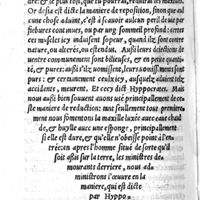 Or desia est dicte la maniere de reposition, sinon que aul
cune chose aduint, c'est à scauoir aulcun peril de uz par
fiebures continues, ou par ung sommeil profond: ent
ces muscles icy induisent sopeur, quand ilz sont contre
nature, ou alterés, ou estendus. Aussi leurs deiections de
uentre communement sont bilieuses, & en petite quanti
té, & pures: aussi s'ilz uomissent, leurs uomissemens sont
purs: & certainement ceulx icy, ausquelz adaiennent telz
accidents, meurent. Et cecy dict Hyppocrates. Mais
nous aussi bien souuent auons usé principalement de ces
ste maniere de reduction: mais tout premierement
nous fomentons la maxille luxée auec eaue chaul
de, & huylle auec une esponge, principalement
si elle est dure, & qu'elle n'obeisse point à l'en
trée: en apres l'homme situé de sorte qu'il
soit assis sur la terre, les ministres de
mourants derriere, nous ad
ministrons l'œuure en la
maniere, qui est dicte
par Hyppo